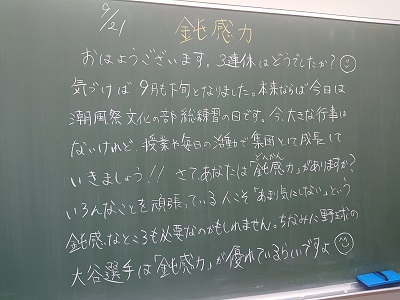 9/21
鈍感力
おはようございます。3連休はどうでしたか?
気づけば9月も下旬となりました。本来ならば今日は
潮風祭文化の部総練習の日です。今、大きな行事は
ないけれど、授業や毎日の活動で集団として成長して
いきましょう!! さて、あなたは「鈍感力」がありますか?
どんかん
いろんなことを頑張っている人こそ「あまり気にしない」という
鈍感なところも必要なのかもしれません。ちなみに野球の
大谷選手は「鈍感力」が優れているらしいですよ